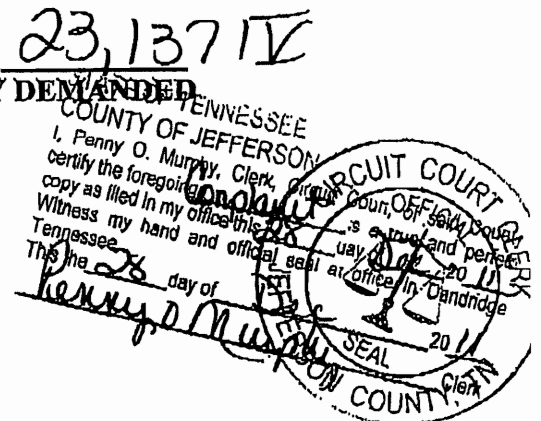 23,137 IV
Y DEMANDED
STATE OF TENNESSEE
COUNTY OF JEFFERSON
I, Penny O. Murphy, Clerk, Circuit Court, of said County
certify the foregoing Complaint is a true and perfect
copy as filed in my office this 28 day Dec 20 11
Witness my hand and official seal at office in Dandridge
Tennessee
This the 28 day of Dec 20 11
Penny O Murphy Clerk
CIRCUIT COURT CLERK
OFFICIAL
SEAL
JEFFERSON COUNTY, TN